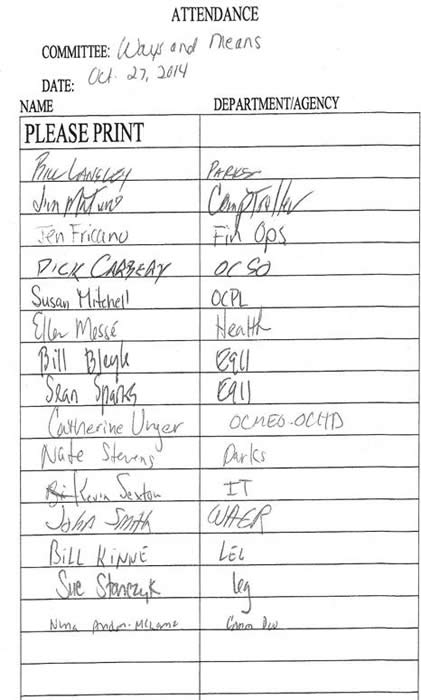 ATTENDANCE
COMMITTEE: Ways and Means
DATE: Oct. 27, 2014
NAME DEPARTMENT/AGENCY
PLEASE PRINT
BILL LANSLEY PARKS
Jim Comptroller
Jen Fricano Fin Ops
DICK CARBERY OCSO
Susan Mitchell OCPL
Ellen Messé Health
Bill E911
Sean Sparks E911
Catherine Unger OCMEO-OCHD
Nate Stevens Parks
Kevin Sexton IT
John Smith WAER
BILL KINNE LEG
Sue Stanczyk leg
Comm Dev